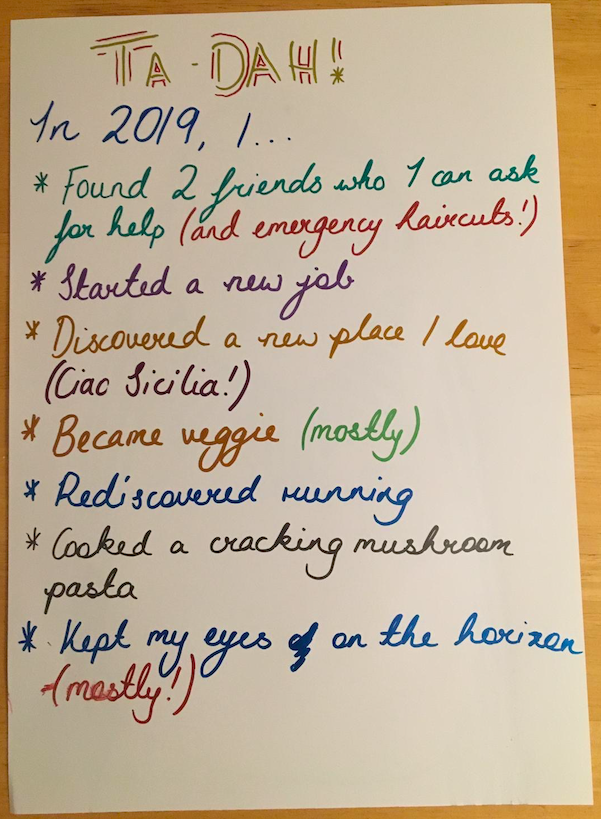 TA-DAH!
In 2019, I...
* Found 2 friends who I can ask
for help (and emergency haircuts!)
* Started a new job
* Discovered a new place I love
(Ciao Sicilia!)
* Became veggie (mostly)
* Rediscovered running
* Cooked a cracking mushroom
pasta
* Kept my eyes on the horizon
(mostly!)